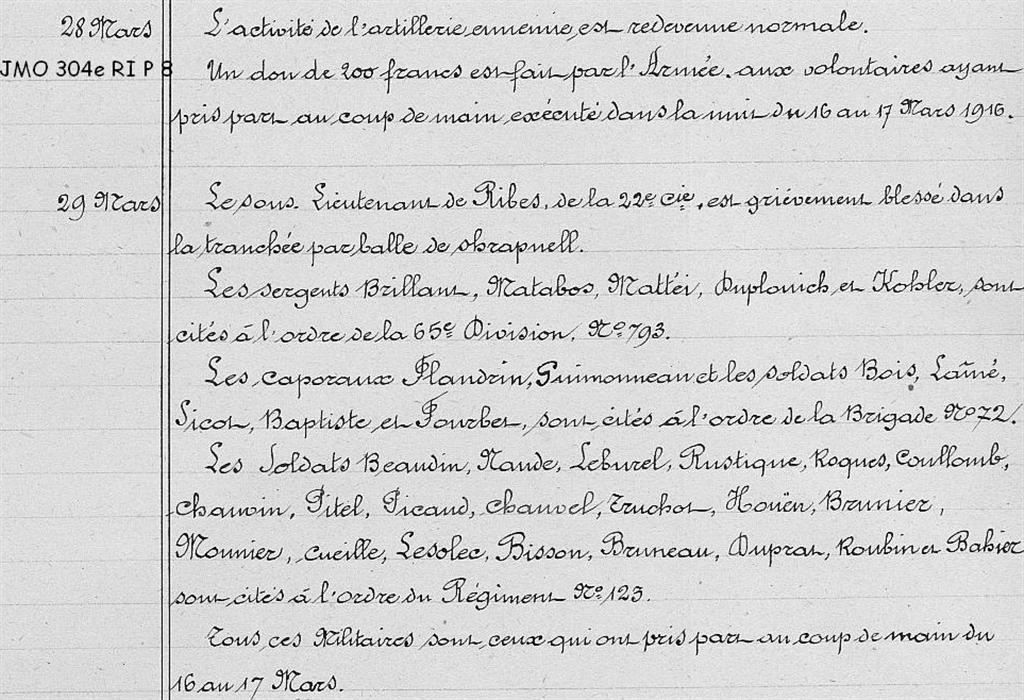 28 Mars L'activité de l'artillerie ennemie est redevenue normale.
JMO 304e RI P 8 Un don de 200 francs est fait par l'Armée. aux volontaires ayant
pris part au coup de main exécuté dans la nuit du 16 au 17 Mars 1916.
29 Mars Le sous. Lieutenant de Ribes, de la 22e Cie, est grièvement blessé dans
la tranchée par balle de shrapnell.
Les sergents Brillant, Matabos, Mattéi, Duplouich et Kohler, sont
cités à l'ordre de la 65e Division. No 793.
Les caporaux Flandrin, Guimonneau et les soldats Bois, Lainé,
Sicot, Baptiste et Fourbet, sont cités à l'ordre de la Brigade No 72.
Les Soldats Beaudin, Naude, Leburel, Rustique, Roques, Coullomb,
Chauvin, Pitel, Picaud, Chauvel, Truchot, Houën, Brunier,
Mounier, Cueille, Lesolec, Bisson, Bruneau, Duprat, Roubin et Bahier
sont cités à l'ordre du Régiment No 123.
Tous ces Militaires sont ceux qui ont pris part au coup de main du
16 au 17 Mars.